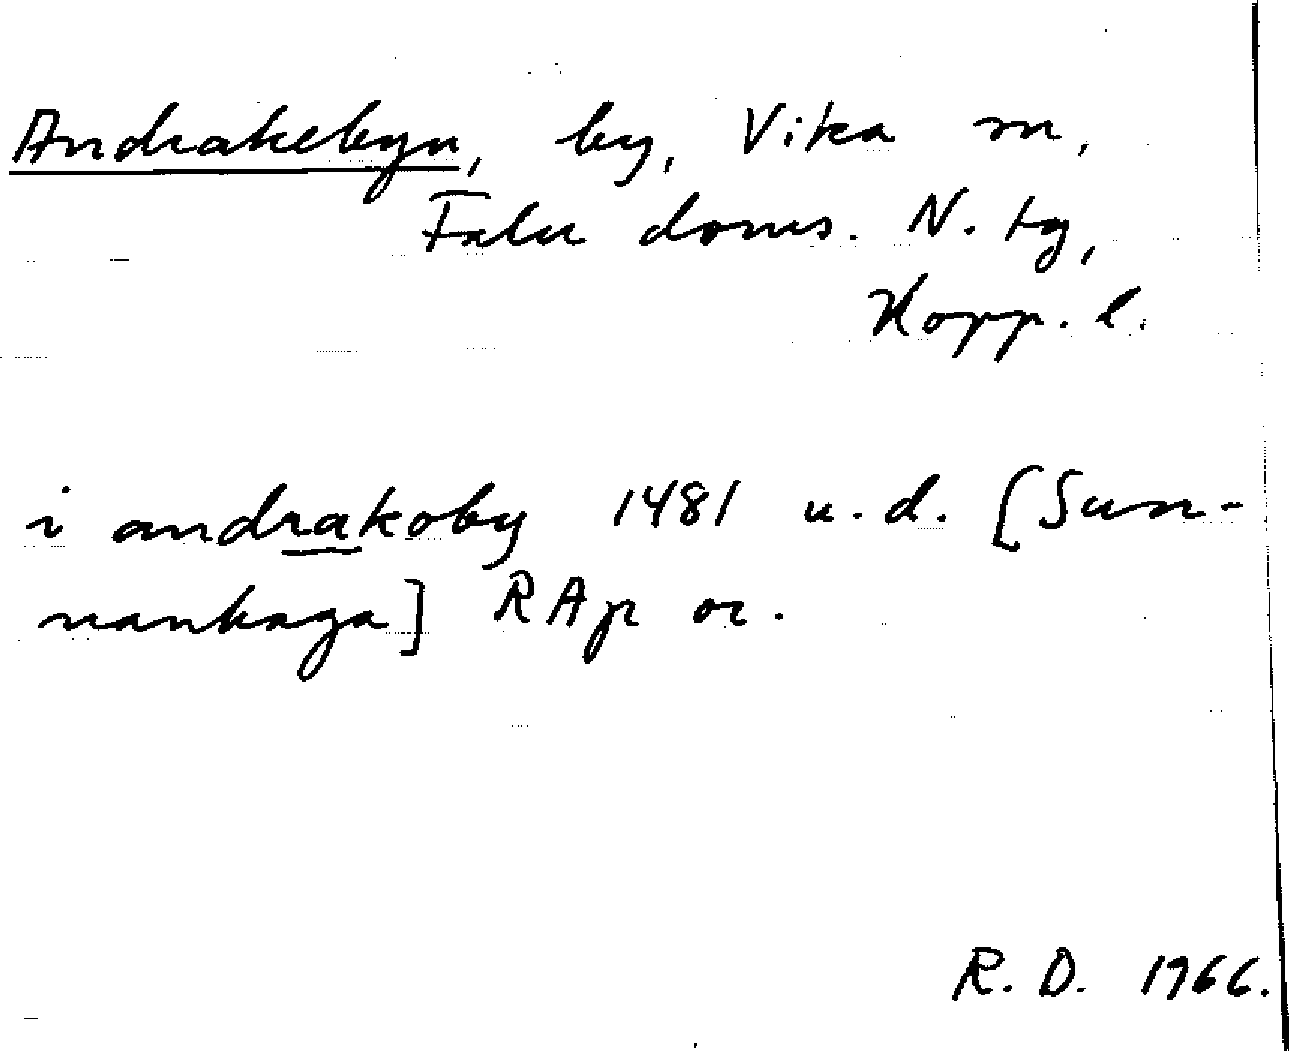 Andrakebyn, by, Vika sn,
Falu doms. N. tg,
Kopp. l.
i andrakoby 1481 u. d. [Sun-
nanhaga] RAp or.
R. D. 1966.